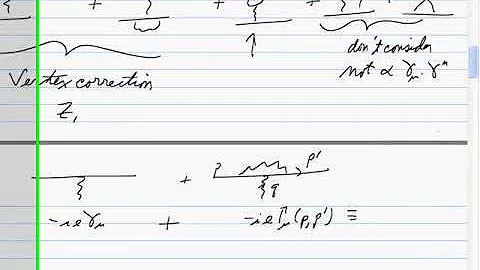 + + +
don't consider
not ∝ γμ.γⁿ
Vertex correction
Z₁
+ p p'
q
-ieγμ + -ieΓμ(p,p') ≡